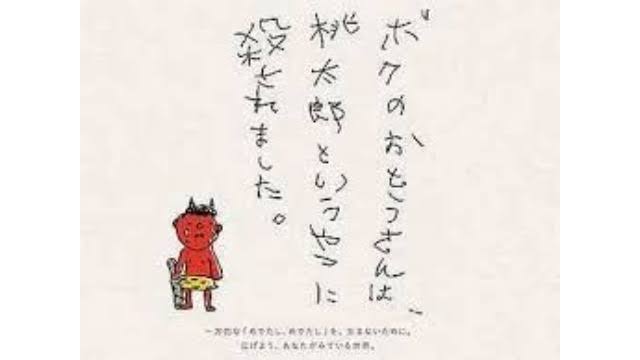 ボクのおとうさんは、
桃太郎というやつに
殺されました。
一方的な「めでたし、めでたし」を、生まないために。
広げよう、あなたがみている世界。